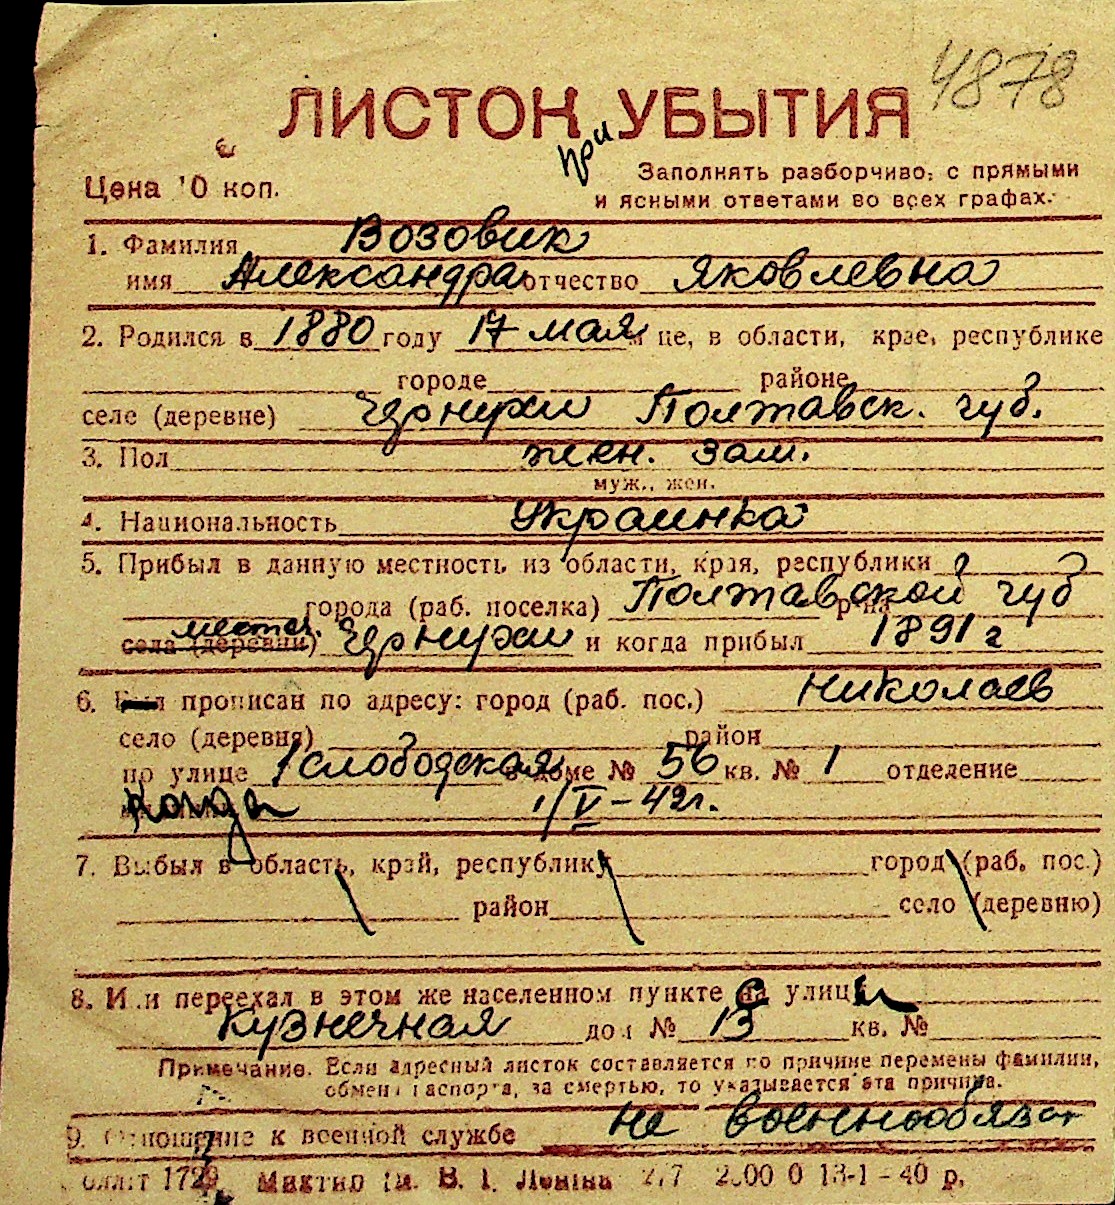 4878
ЛИСТОК УБЫТИЯ
при
Цена 10 коп.
Заполнять разборчиво, с прямыми
и ясными ответами во всех графах.
1. Фамилия Возовик
имя Александра отчество Яковлевна
2. Родился в 1880 году 17 мая це, в области, крае, республике
городе районе
селе (деревне) Чернухи Полтавск. губ.
3. Пол жен. зам.
муж., жен.
4. Национальность Украинка
5. Прибыл в данную местность из области, края, республики
города (раб. поселка) Полтавской губ р-на
местеч.
села (деревни) Чернухи и когда прибыл 1891 г
6. прописан по адресу: город (раб. пос.) Николаев
село (деревня) район
по улице 1 слободская в доме № 56 кв. № 1 отделение
когда 1/V-42г.
7. Выбыл в область, край, республику город (раб. пос.)
район село (деревню)
8. Или переехал в этом же населенном пункте с улицы
Кузнечная дом № 13 кв. №
Примечание. Если адресный листок составляется по причине перемены фамилии,
обмена паспорта, за смертью, то указывается эта причина.
9. Отношение к военной службе не военнообязат
В. І. Леніна 13-1-40 р.